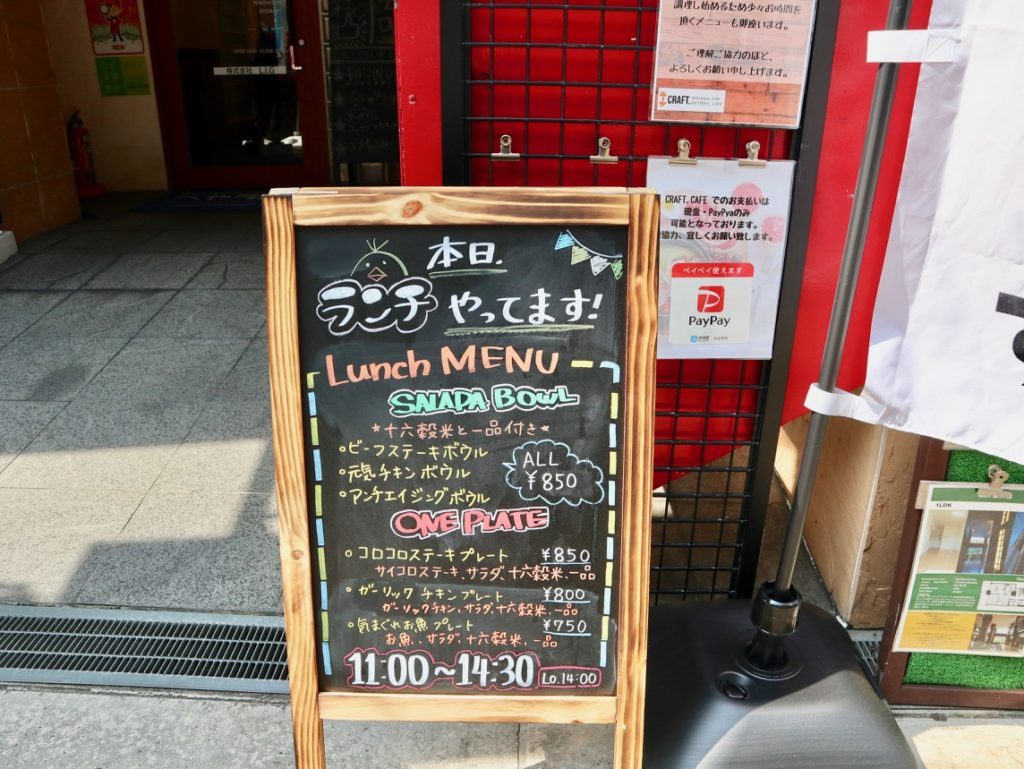 調理し始めるため少々お時間を
頂くメニューも御座います。
ご理解ご協力のほど、
よろしくお願い申し上げます。
CRAFT.
株式会社 LIG
CRAFT. CAFE でのお支払いは
現金・PayPyaのみ
可能となっております。
協力、宜しくお願い致します。
ペイペイ使えます
PayPay
本日.
ランチ やってます!
Lunch MENU
SALADA BOWL
*十六穀米と一品付き*
・ビーフステーキボウル
・元気チキンボウル
・アンチエイジングボウル
ALL
¥850
ONE PLATE
・コロコロステーキプレート ¥850
サイコロステーキ、サラダ、十六穀米、一品
・ガーリックチキンプレート ¥800
ガーリックチキン、サラダ、十六穀米、一品
・気まぐれお魚プレート ¥750
お魚、サラダ、十六穀米、一品
11:00~14:30 Lo.14:00
1LDK